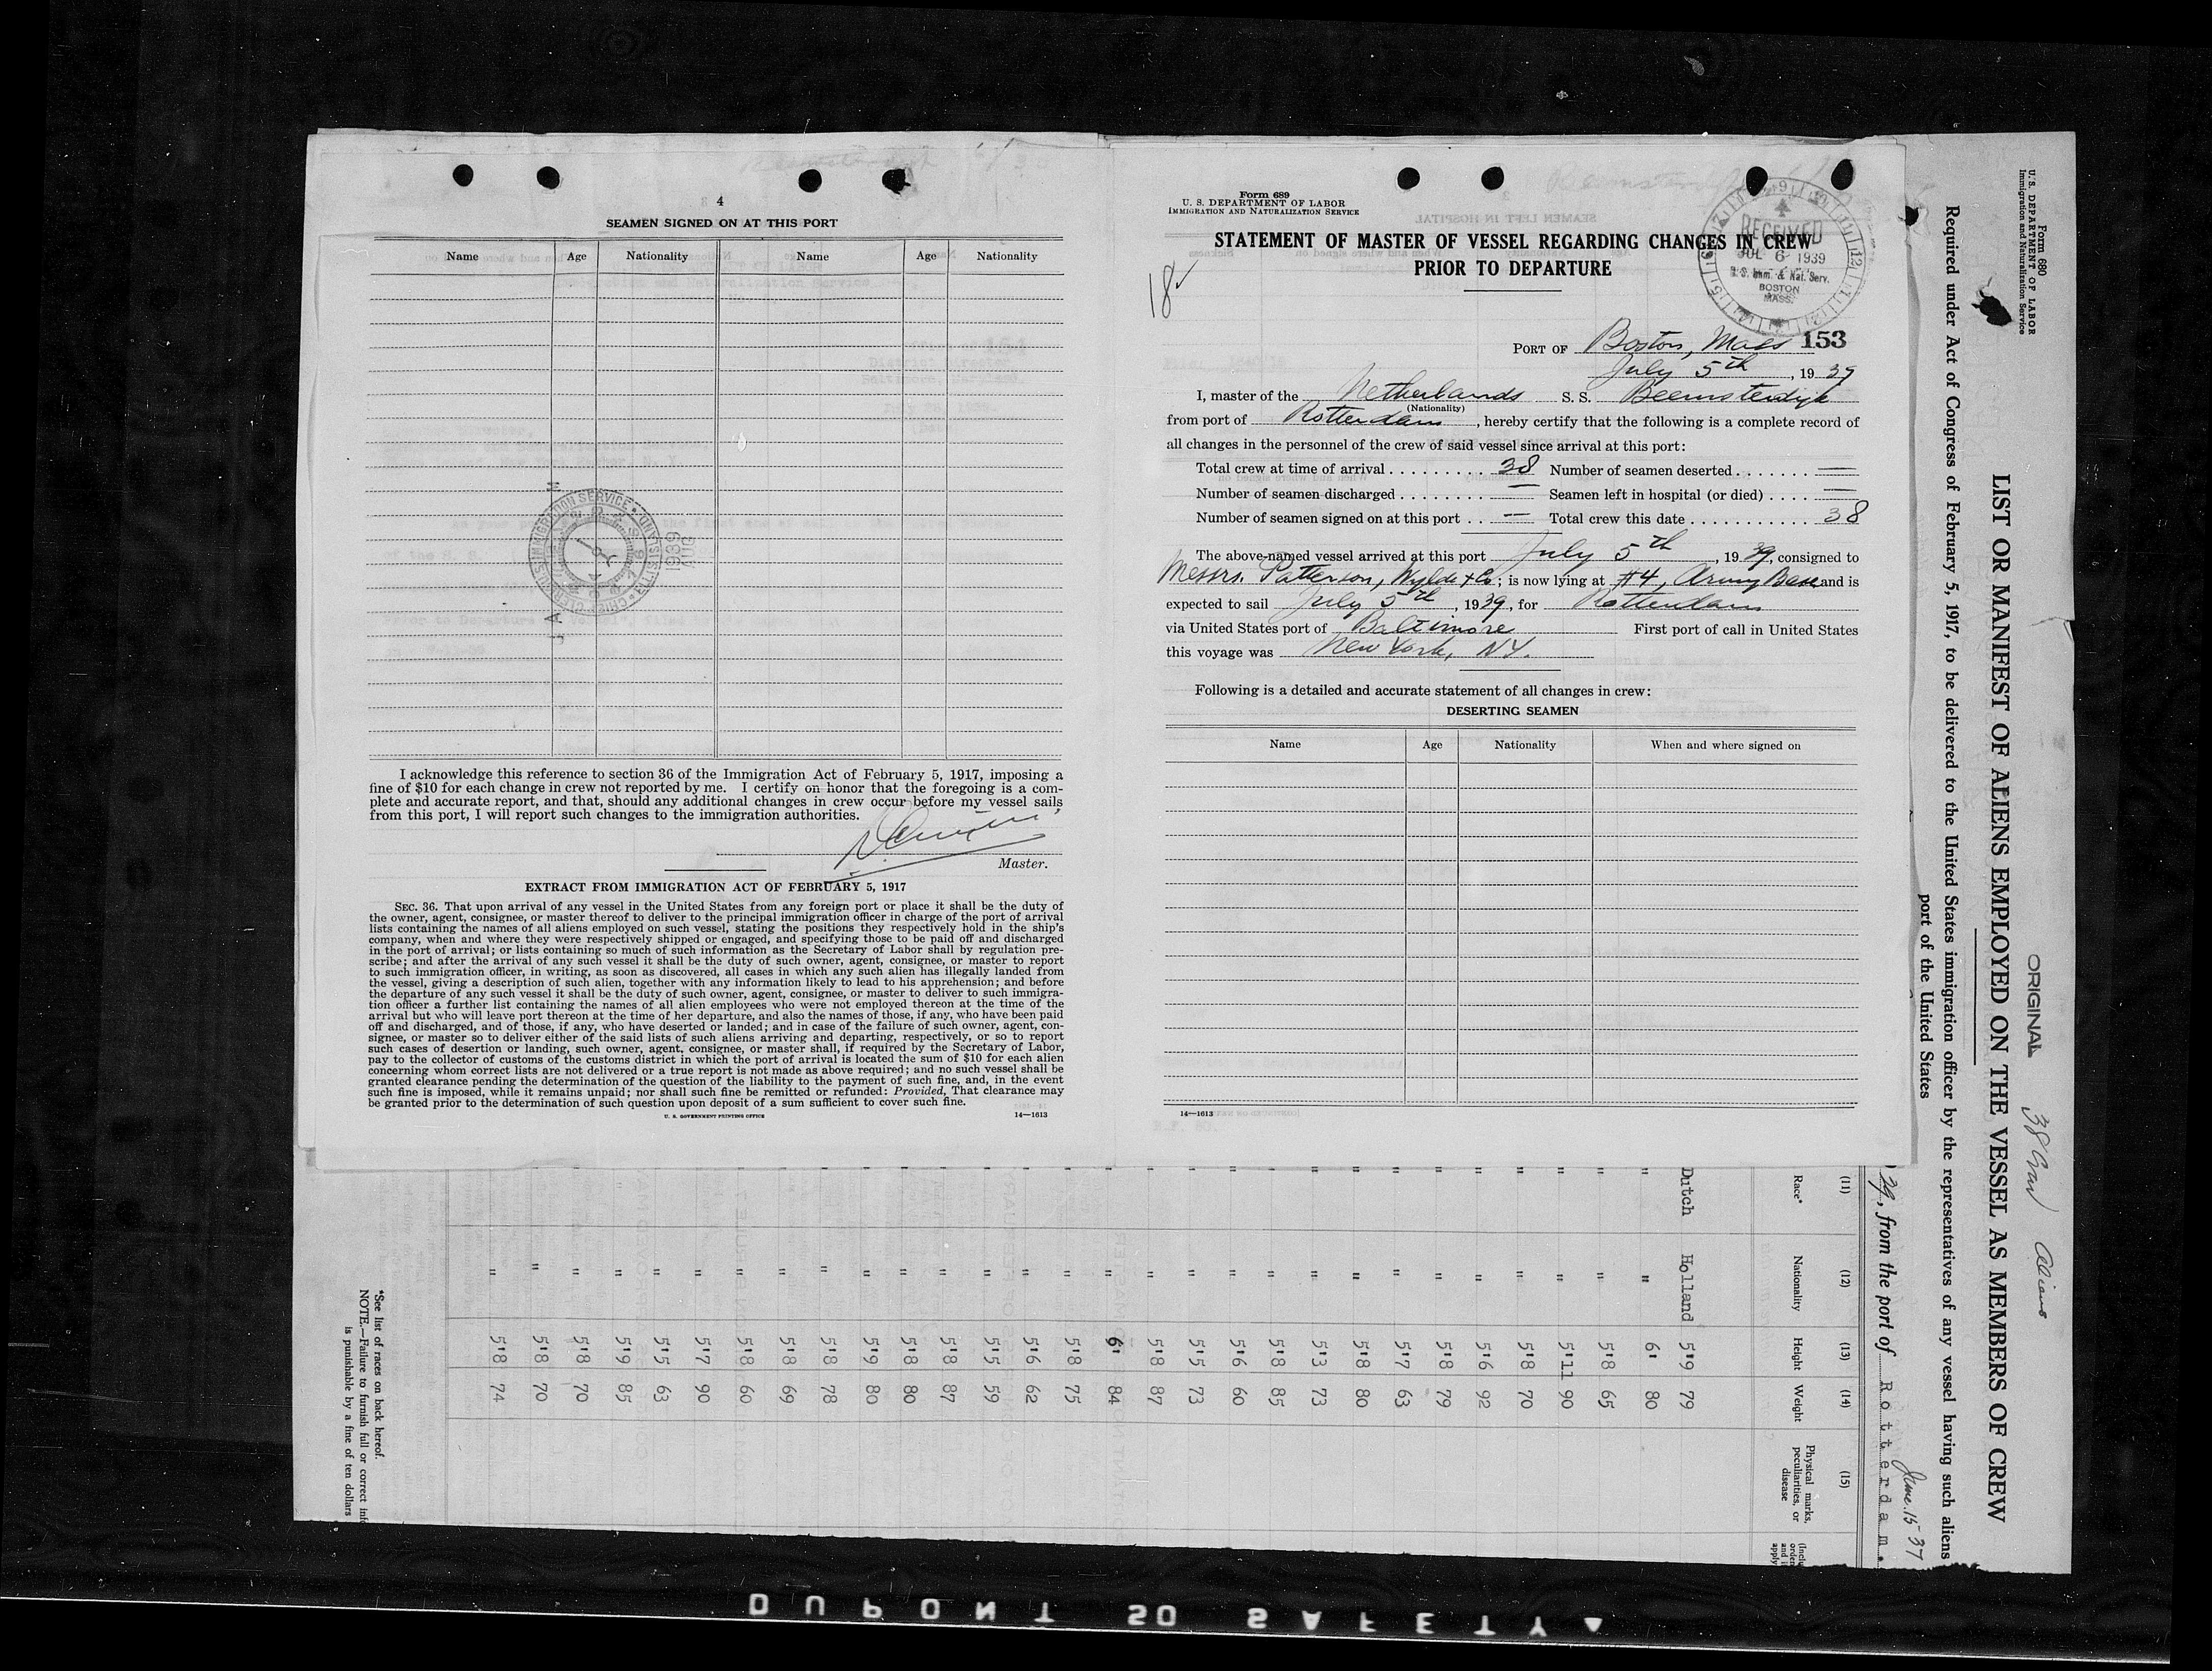 4
SEAMEN SIGNED ON AT THIS PORT
Name Age Nationality Name Age Nationality
IMMIGRATION SERVICE
1939
AUG
I acknowledge this reference to section 36 of the Immigration Act of February 5, 1917, imposing a
fine of $10 for each change in crew not reported by me. I certify on honor that the foregoing is a com-
plete and accurate report, and that, should any additional changes in crew occur before my vessel sails
from this port, I will report such changes to the immigration authorities.
Master.
EXTRACT FROM IMMIGRATION ACT OF FEBRUARY 5, 1917
SEC. 36. That upon arrival of any vessel in the United States from any foreign port or place it shall be the duty of
the owner, agent, consignee, or master thereof to deliver to the principal immigration officer in charge of the port of arrival
lists containing the names of all aliens employed on such vessel, stating the positions they respectively hold in the ship's
company, when and where they were respectively shipped or engaged, and specifying those to be paid off and discharged
in the port of arrival; or lists containing so much of such information as the Secretary of Labor shall by regulation pre-
scribe; and after the arrival of any such vessel it shall be the duty of such owner, agent, consignee, or master to report
to such immigration officer, in writing, as soon as discovered, all cases in which any such alien has illegally landed from
the vessel, giving a description of such alien, together with any information likely to lead to his apprehension; and before
the departure of any such vessel it shall be the duty of such owner, agent, consignee, or master to deliver to such immigra-
tion officer a further list containing the names of all alien employees who were not employed thereon at the time of the
arrival but who will leave port thereon at the time of her departure, and also the names of those, if any, who have been paid
off and discharged, and of those, if any, who have deserted or landed; and in case of the failure of such owner, agent, con-
signee, or master so to deliver either of the said lists of such aliens arriving and departing, respectively, or so to report
such cases of desertion or landing, such owner, agent, consignee, or master shall, if required by the Secretary of Labor,
pay to the collector of customs of the customs district in which the port of arrival is located the sum of $10 for each alien
concerning whom correct lists are not delivered or a true report is not made as above required; and no such vessel shall be
granted clearance pending the determination of the question of the liability to the payment of such fine, and, in the event
such fine is imposed, while it remains unpaid; nor shall such fine be remitted or refunded: Provided, That clearance may
be granted prior to the determination of such question upon deposit of a sum sufficient to cover such fine.
U. S. GOVERNMENT PRINTING OFFICE 14—1613
Form 689
U. S. DEPARTMENT OF LABOR
IMMIGRATION AND NATURALIZATION SERVICE
STATEMENT OF MASTER OF VESSEL REGARDING CHANGES IN CREW
PRIOR TO DEPARTURE
RECEIVED
JUL 6 1939
U.S. Imm. & Nat. Serv.
BOSTON
MASS.
18
PORT OF Boston, Mass 153
July 5th, 1939
I, master of the Netherlands S. S. Beemsterdijk
(Nationality)
from port of Rotterdam, hereby certify that the following is a complete record of
all changes in the personnel of the crew of said vessel since arrival at this port:
Total crew at time of arrival . . . . . . . . . 38 Number of seamen deserted . . . . . . . —
Number of seamen discharged . . . . . . . . — Seamen left in hospital (or died) . . . . —
Number of seamen signed on at this port . . — Total crew this date . . . . . . . . . . . . 38
The above-named vessel arrived at this port July 5th, 1939, consigned to
Messrs. Patterson, Wylde & Co.; is now lying at #4, Army Base and is
expected to sail July 5th, 1939, for Rotterdam
via United States port of Baltimore First port of call in United States
this voyage was New York, NY.
Following is a detailed and accurate statement of all changes in crew:
DESERTING SEAMEN
Name Age Nationality When and where signed on
14—1613
Form 680
U. S. DEPARTMENT OF LABOR
Immigration and Naturalization Service
ORIGINAL 38 Crew Aliens
LIST OR MANIFEST OF ALIENS EMPLOYED ON THE VESSEL AS MEMBERS OF CREW
Required under Act of Congress of February 5, 1917, to be delivered to the United States immigration officer by the representatives of any vessel having such aliens
port of the United States
June 15-37
29, from the port of Rotterdam.
(11) (12) (13) (14) (15)
Race* Nationality Height Weight Physical marks, peculiarities, or disease
Dutch Holland 5'9 79
" " 6' 80
" " 5'8 65
" " 5'11 90
" " 5'8 70
" " 5'6 92
" " 5'8 79
" " 5'7 63
" " 5'8 80
" " 5'3 73
" " 5'8 85
" " 5'6 60
" " 5'5 73
" " 5'8 87
" " 6' 84
" " 5'8 75
" " 5'6 62
" " 5'5 59
" " 5'8 87
" " 5'8 80
" " 5'9 80
" " 5'8 78
" " 5'8 69
" " 5'8 60
" " 5'7 90
" " 5'5 63
" " 5'9 85
" " 5'8 70
" " 5'8 70
" " 5'8 74
*See list of races on back hereof.
NOTE.—Failure to furnish full or correct
is punishable by a fine of ten dollars
DUPONT 50 SAFETY